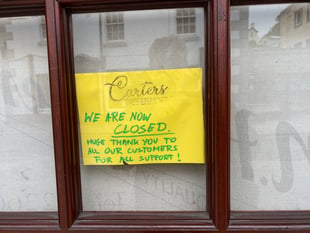 Carters
WE ARE NOW
CLOSED.
HUGE THANK YOU TO
ALL OUR CUSTOMERS
FOR ALL SUPPORT!